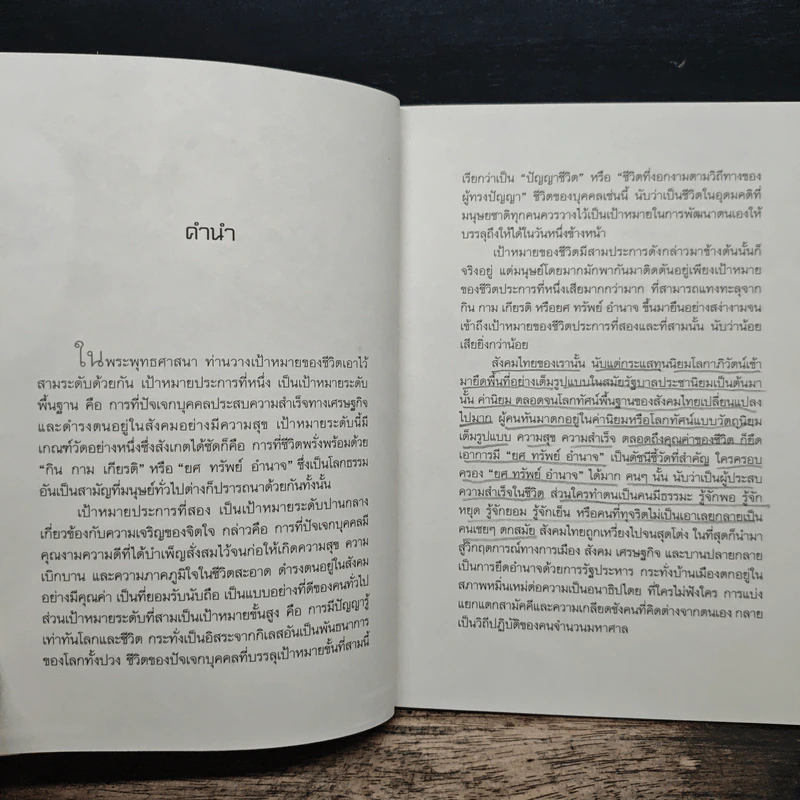 คำนำ
ในพระพุทธศาสนา ท่านวางเป้าหมายของชีวิตเอาไว้
สามระดับด้วยกัน เป้าหมายประการที่หนึ่ง เป็นเป้าหมายระดับ
พื้นฐาน คือ การที่ปัจเจกบุคคลประสบความสำเร็จทางเศรษฐกิจ
และดำรงตนอยู่ในสังคมอย่างมีความสุข เป้าหมายระดับนี้มี
เกณฑ์วัดอย่างหนึ่งซึ่งสังเกตได้ชัดก็คือ การที่ชีวิตพรั่งพร้อมด้วย
"กิน กาม เกียรติ" หรือ "ยศ ทรัพย์ อำนาจ" ซึ่งเป็นโลกธรรม
อันเป็นสามัญที่มนุษย์ทั่วไปต่างก็ปรารถนาด้วยกันทั้งนั้น
เป้าหมายประการที่สอง เป็นเป้าหมายระดับปานกลาง
เกี่ยวข้องกับความเจริญของจิตใจ กล่าวคือ การที่ปัจเจกบุคคลมี
คุณงามความดีที่ได้บำเพ็ญสั่งสมไว้จนก่อให้เกิดความสุข ความ
เบิกบาน และความภาคภูมิใจในชีวิตสะอาด ดำรงตนอยู่ในสังคม
อย่างมีคุณค่า เป็นที่ยอมรับนับถือ เป็นแบบอย่างที่ดีของคนทั่วไป
ส่วนเป้าหมายระดับที่สามเป็นเป้าหมายขั้นสูง คือ การมีปัญญารู้
เท่าทันโลกและชีวิต กระทั่งเป็นอิสระจากกิเลสอันเป็นพันธนาการ
ของโลกทั้งปวง ชีวิตของปัจเจกบุคคลที่บรรลุเป้าหมายขั้นที่สามนี้
เรียกว่าเป็น "ปัญญาชีวิต" หรือ "ชีวิตที่งอกงามตามวิถีทางของ
ผู้ทรงปัญญา" ชีวิตของบุคคลเช่นนี้ นับว่าเป็นชีวิตในอุดมคติที่
มนุษยชาติทุกคนควรวางไว้เป็นเป้าหมายในการพัฒนาตนเองให้
บรรลุถึงให้ได้ในวันหนึ่งข้างหน้า
เป้าหมายของชีวิตมีสามประการดังกล่าวมาข้างต้นนั้นก็
จริงอยู่ แต่มนุษย์โดยมากมักพากันมาติดตันอยู่เพียงเป้าหมาย
ของชีวิตประการที่หนึ่งเสียมากกว่ามาก ที่สามารถแทงทะลุจาก
กิน กาม เกียรติ หรือยศ ทรัพย์ อำนาจ ขึ้นมายืนอย่างสง่างามจน
เข้าถึงเป้าหมายของชีวิตประการที่สองและที่สามนั้น นับว่าน้อย
เสียยิ่งกว่าน้อย
สังคมไทยของเรานั้น นับแต่กระแสทุนนิยมโลกาภิวัตน์เข้า
มายึดพื้นที่อย่างเต็มรูปแบบในสมัยรัฐบาลประชานิยมเป็นต้นมา
นั้น ค่านิยม ตลอดจนโลกทัศน์พื้นฐานของสังคมไทยเปลี่ยนแปลง
ไปมาก ผู้คนหันมาตกอยู่ในค่านิยมหรือโลกทัศน์แบบวัตถุนิยม
เต็มรูปแบบ ความสุข ความสำเร็จ ตลอดถึงคุณค่าของชีวิต ก็ยึด
เอาการมี "ยศ ทรัพย์ อำนาจ" เป็นดัชนีชี้วัดที่สำคัญ ใครครอบ
ครอง "ยศ ทรัพย์ อำนาจ" ได้มาก คนๆ นั้น นับว่าเป็นผู้ประสบ
ความสำเร็จในชีวิต ส่วนใครทำตนเป็นคนมีธรรมะ รู้จักพอ รู้จัก
หยุด รู้จักยอม รู้จักเย็น หรือคนที่ทุจริตไม่เป็นเอาเลยกลายเป็น
คนเชยๆ ตกสมัย สังคมไทยถูกเหวี่ยงไปจนสุดโต่ง ในที่สุดก็นำมา
สู่วิกฤตการณ์ทางการเมือง สังคม เศรษฐกิจ และบานปลายกลาย
เป็นการยึดอำนาจด้วยการรัฐประหาร กระทั่งบ้านเมืองตกอยู่ใน
สภาพหมิ่นเหม่ต่อความเป็นอนาธิปไตย ที่ใครไม่ฟังใคร การแบ่ง
แยกแตกสามัคคีและความเกลียดชังคนที่คิดต่างจากตนเอง กลาย
เป็นวิถีปฏิบัติของคนจำนวนมหาศาล